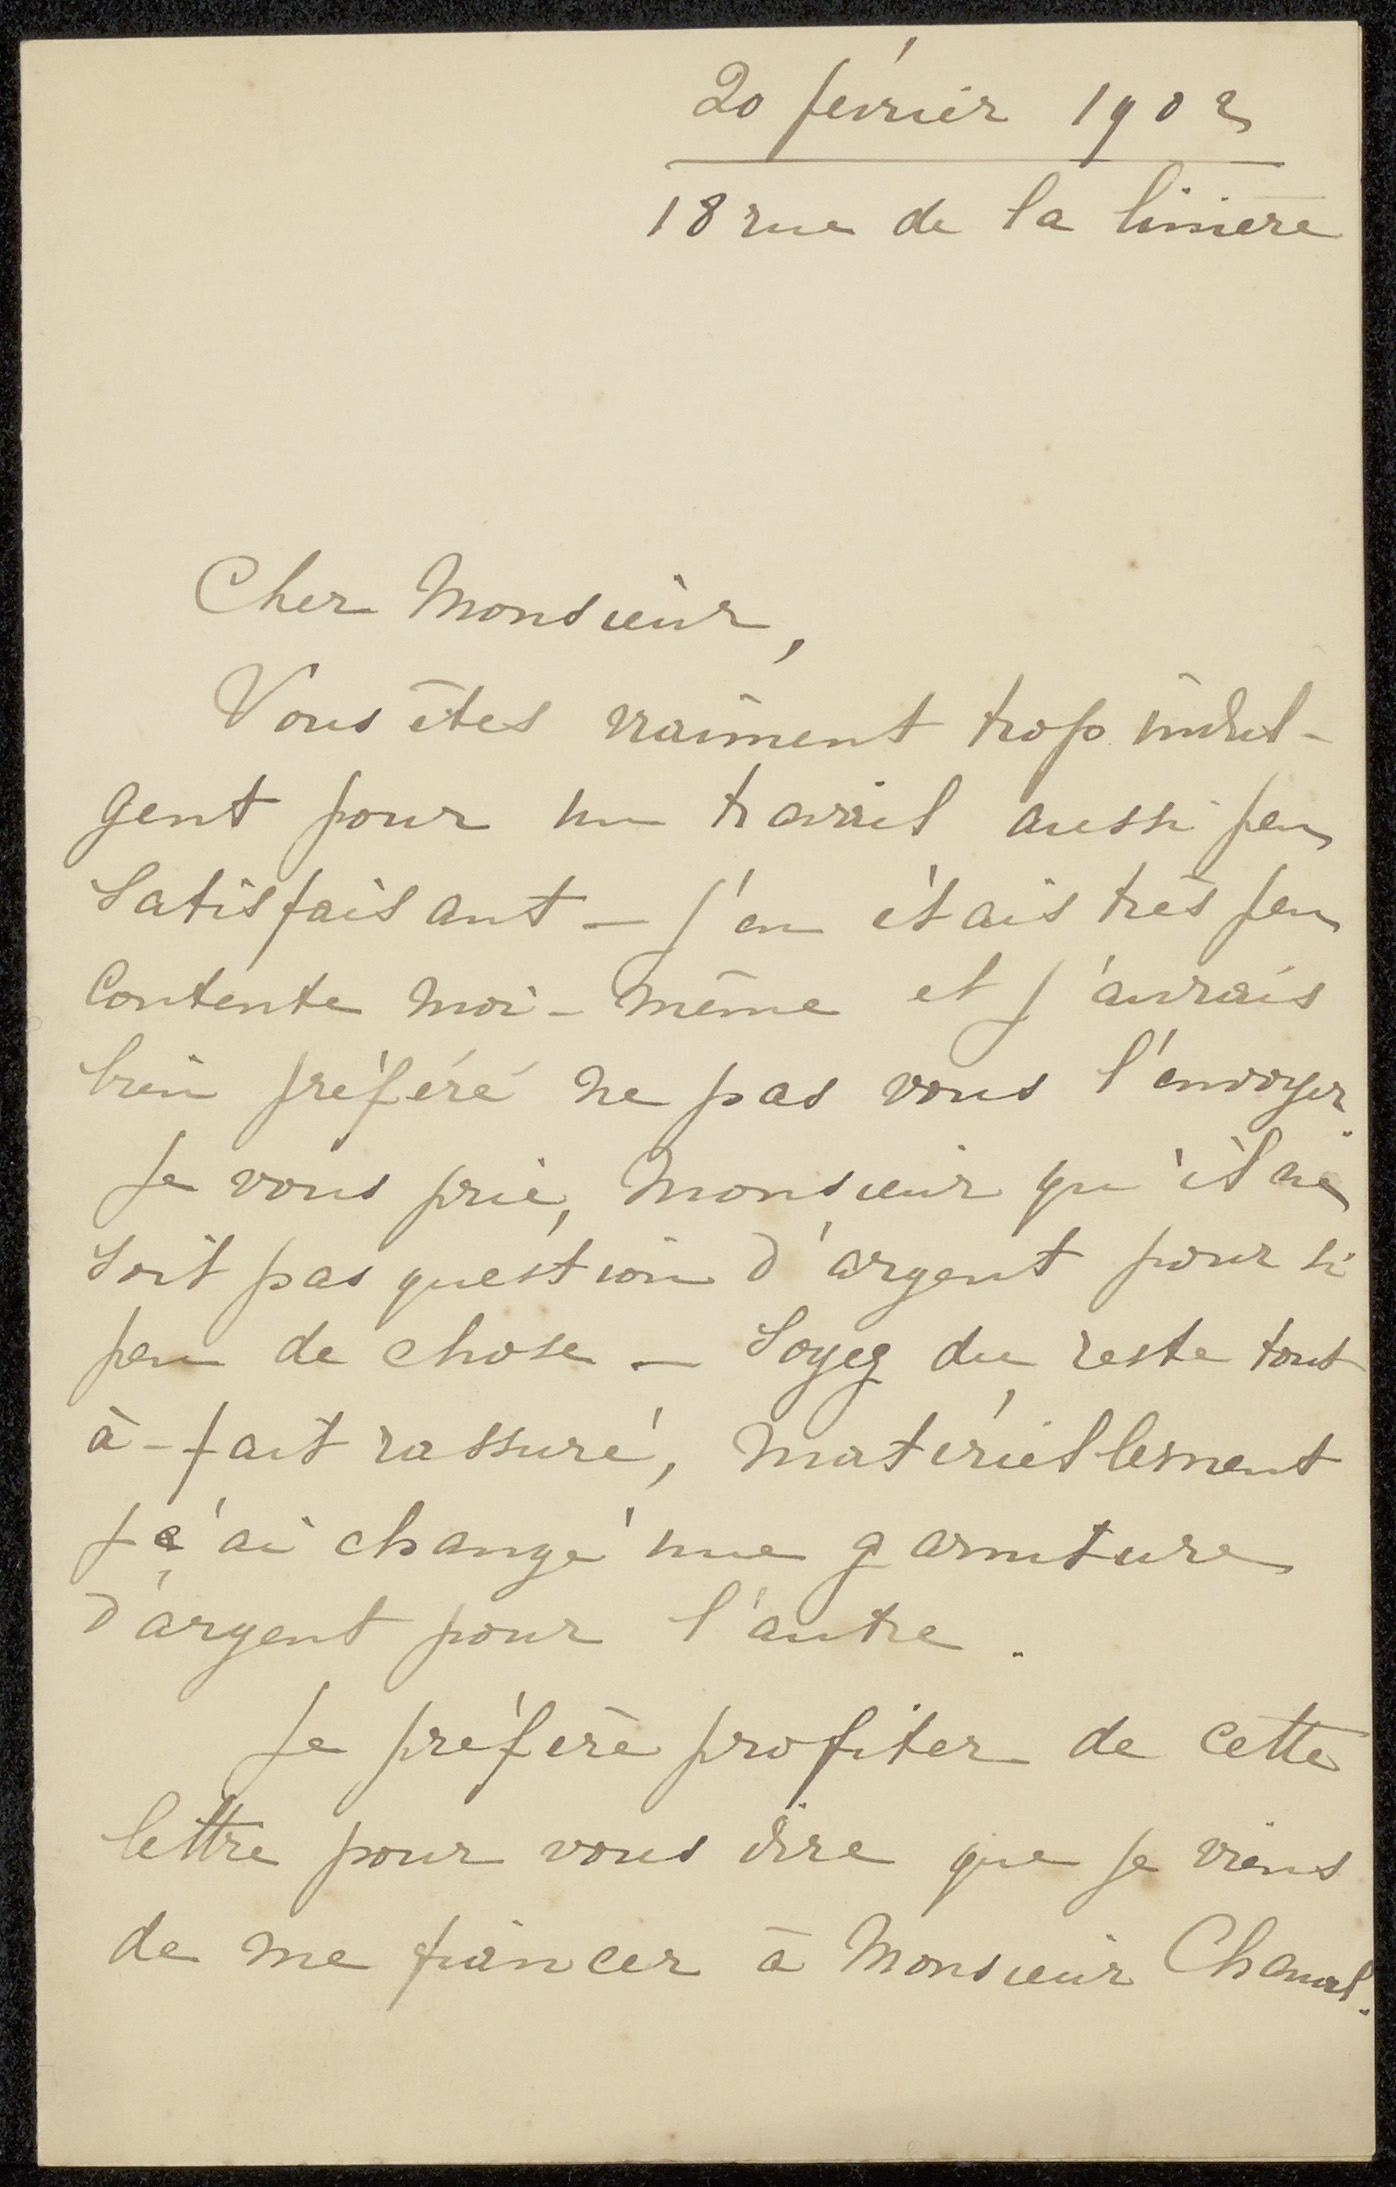 20 février 1902
18 rue de la linière
Cher Monsieur,
Vous êtes vraiment trop indul-
gent pour un travail aussi peu
satisfaisant - j'en étais très peu
contente moi-même et j'aurais
bien préféré ne pas vous l'envoyer.
Je vous prie, Monsieur qu'il ne
soit pas question d'argent pour si
peu de chose - Soyez du reste tout
à-fait rassuré, matériellement
j'ai changé une garniture
d'argent pour l'autre.
Je préfère profiter de cette
lettre pour vous dire que je viens
de me fiancer à Monsieur